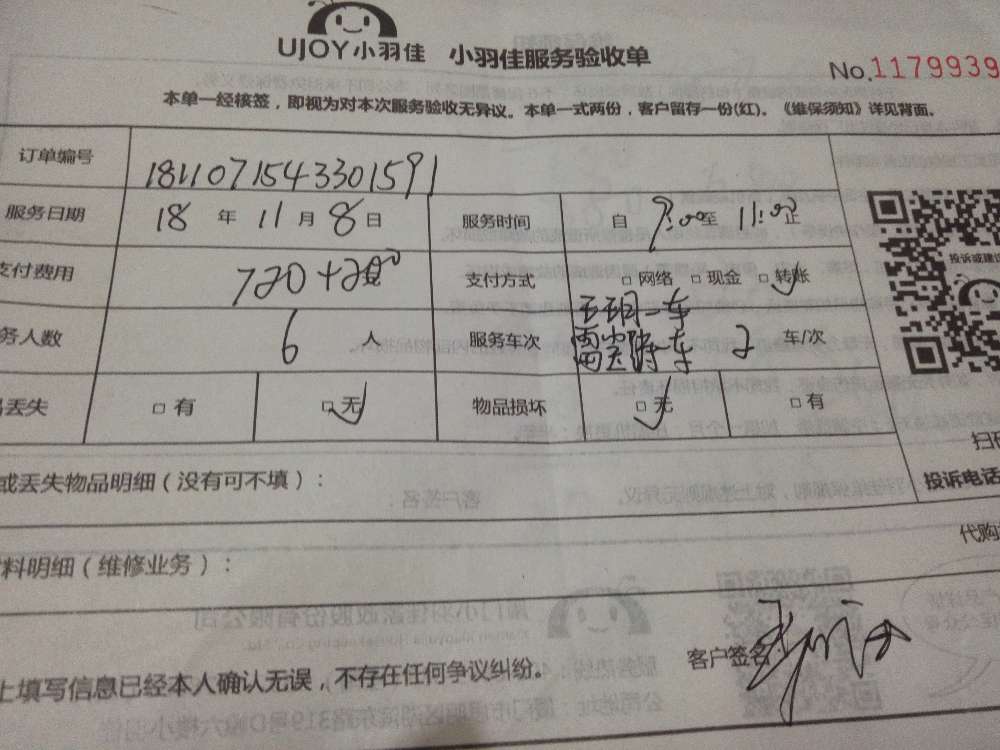 UJOY小羽佳 小羽佳服务验收单
No.1179939
本单一经核签，即视为对本次服务验收无异议。本单一式两份，客户留存一份(红)。《维保须知》详见背面。
订单编号 1811071543301591
服务日期 18 年 11 月 8 日 服务时间 自 9:00 至 11:00 止
支付费用 720+200 支付方式 □网络 □现金 □转账
务人数 6 人 服务车次 2 车/次
丢失 □有 □无 物品损坏 □无 □有
投诉或建议
或丢失物品明细（没有可不填）：
扫
投诉电话
料明细（维修业务）：
代购
客户签名：
上填写信息已经本人确认无误，不存在任何争议纠纷。